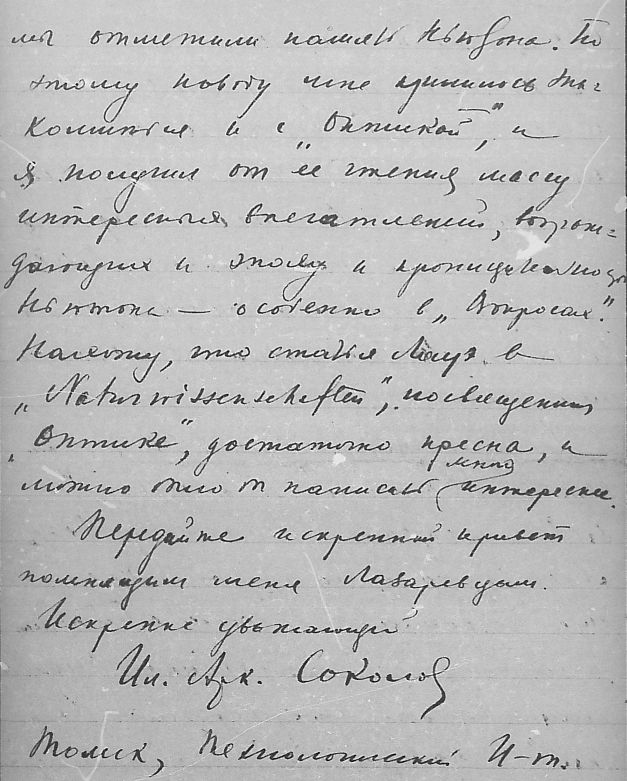 мы отметили память Ньютона. По
этому поводу мне пришлось зна-
комиться и с „Оптикой“, и
я получил от ее чтения массу
интересных впечатлений, возбуж-
дающих и эпоху и проницательность
Ньютона — особенно в „Вопросах“.
Нахожу, что статья Лауэ в
„Naturwissenschaften“, посвященная
„Оптике“, достаточно пресна, и
можно было б написать много интереснее.
Передайте искренний привет
помнящим меня Лазаревцам.
Искренне уважающий
Ил. Арк. Соколов
Томск, Технологический И-т.